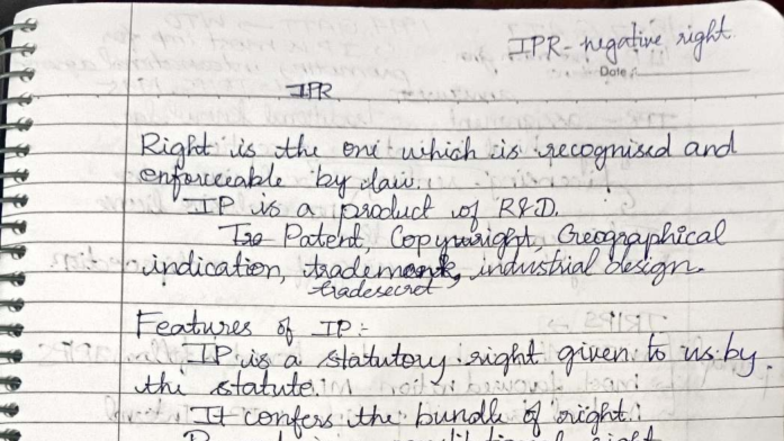 IPR - negative right
Date
IPR
Right is the one which is recognised and
enforceable by law.
IP is a product of R&D.
Patent, Copyright, Geographical
indication, trademark, industrial design.
tradesecret
Features of IP :-
IP is a statutory right given to us by
the statute.
It confers the bundle of right.